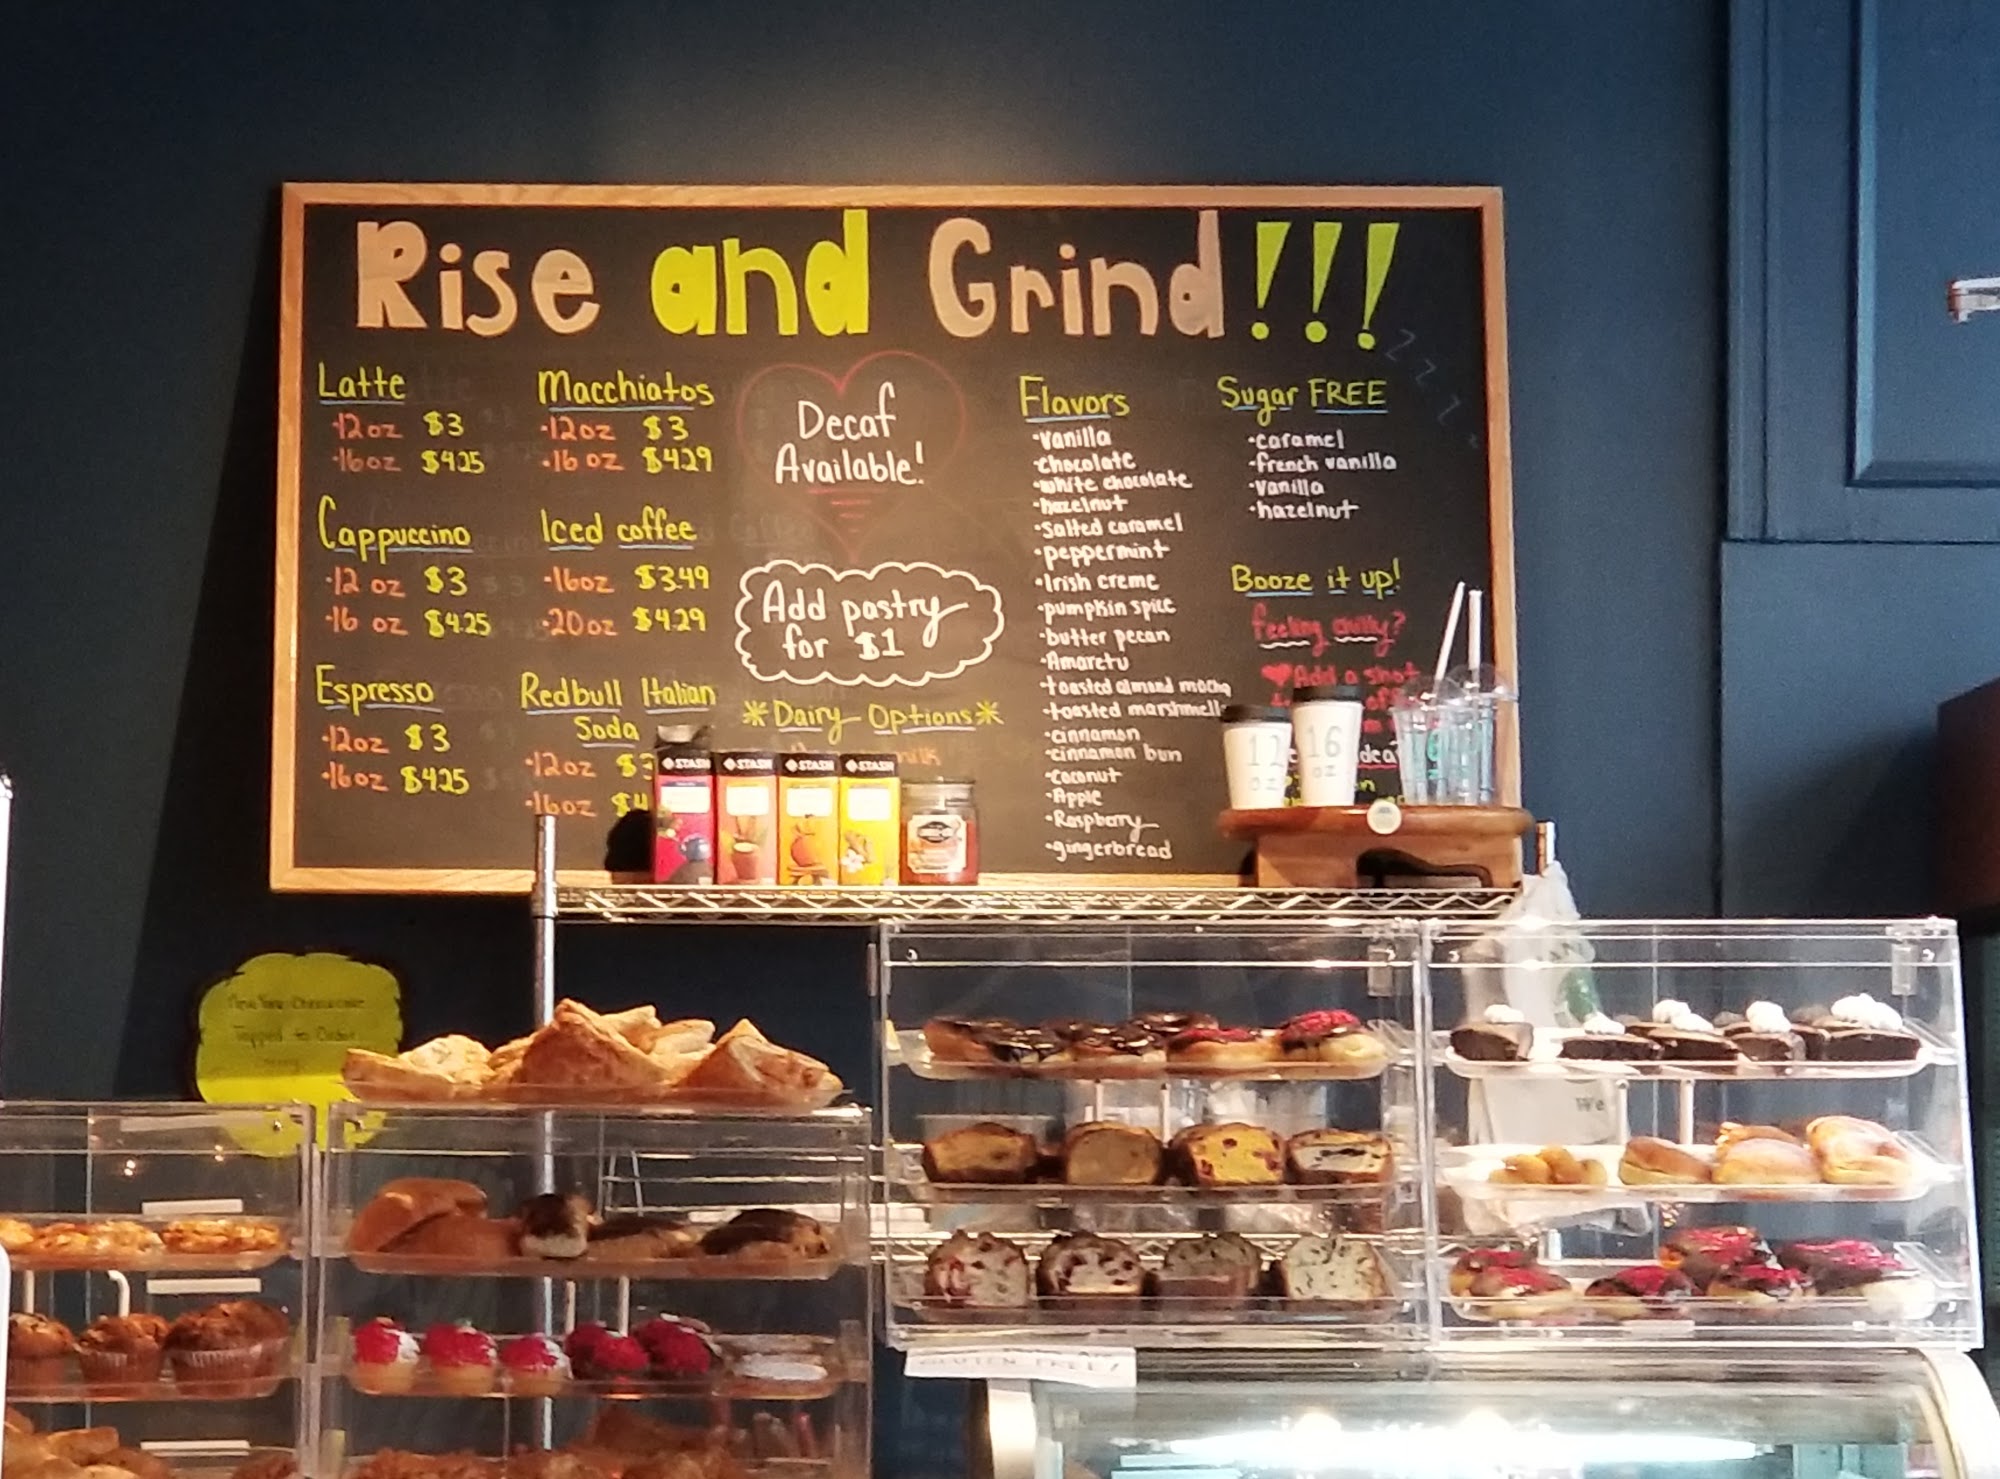 Rise and Grind!!!
Latte
·12oz $3
·16oz $4.25
Cappuccino
·12 oz $3
·16 oz $4.25
Espresso
·12oz $3
·16oz $4.25
Macchiatos
·12oz $3
·16 oz $4.29
Iced coffee
·16oz $3.49
·20oz $4.29
Redbull Italian
Soda
·12oz $3
·16oz $4
Decaf
Available!
Add pastry
for $1
*Dairy Options*
milk
Flavors
·Vanilla
·chocolate
·white chocolate
·hazelnut
·Salted caramel
·peppermint
·Irish creme
·pumpkin spice
·butter pecan
·Amaretu
·toasted almond mocha
·toasted marshmell
·cinnamon
·cinnamon bun
·Coconut
·Apple
·Raspberry
·gingerbread
Sugar FREE
·caramel
·french vanilla
·Vanilla
·hazelnut
Booze it up!
feeling chilly?
Add a shot
zzzz
STASH
STASH
STASH
STASH
12
oz
16
oz
New York Cheesecake
Topped to Order
We
GLUTEN FREE!